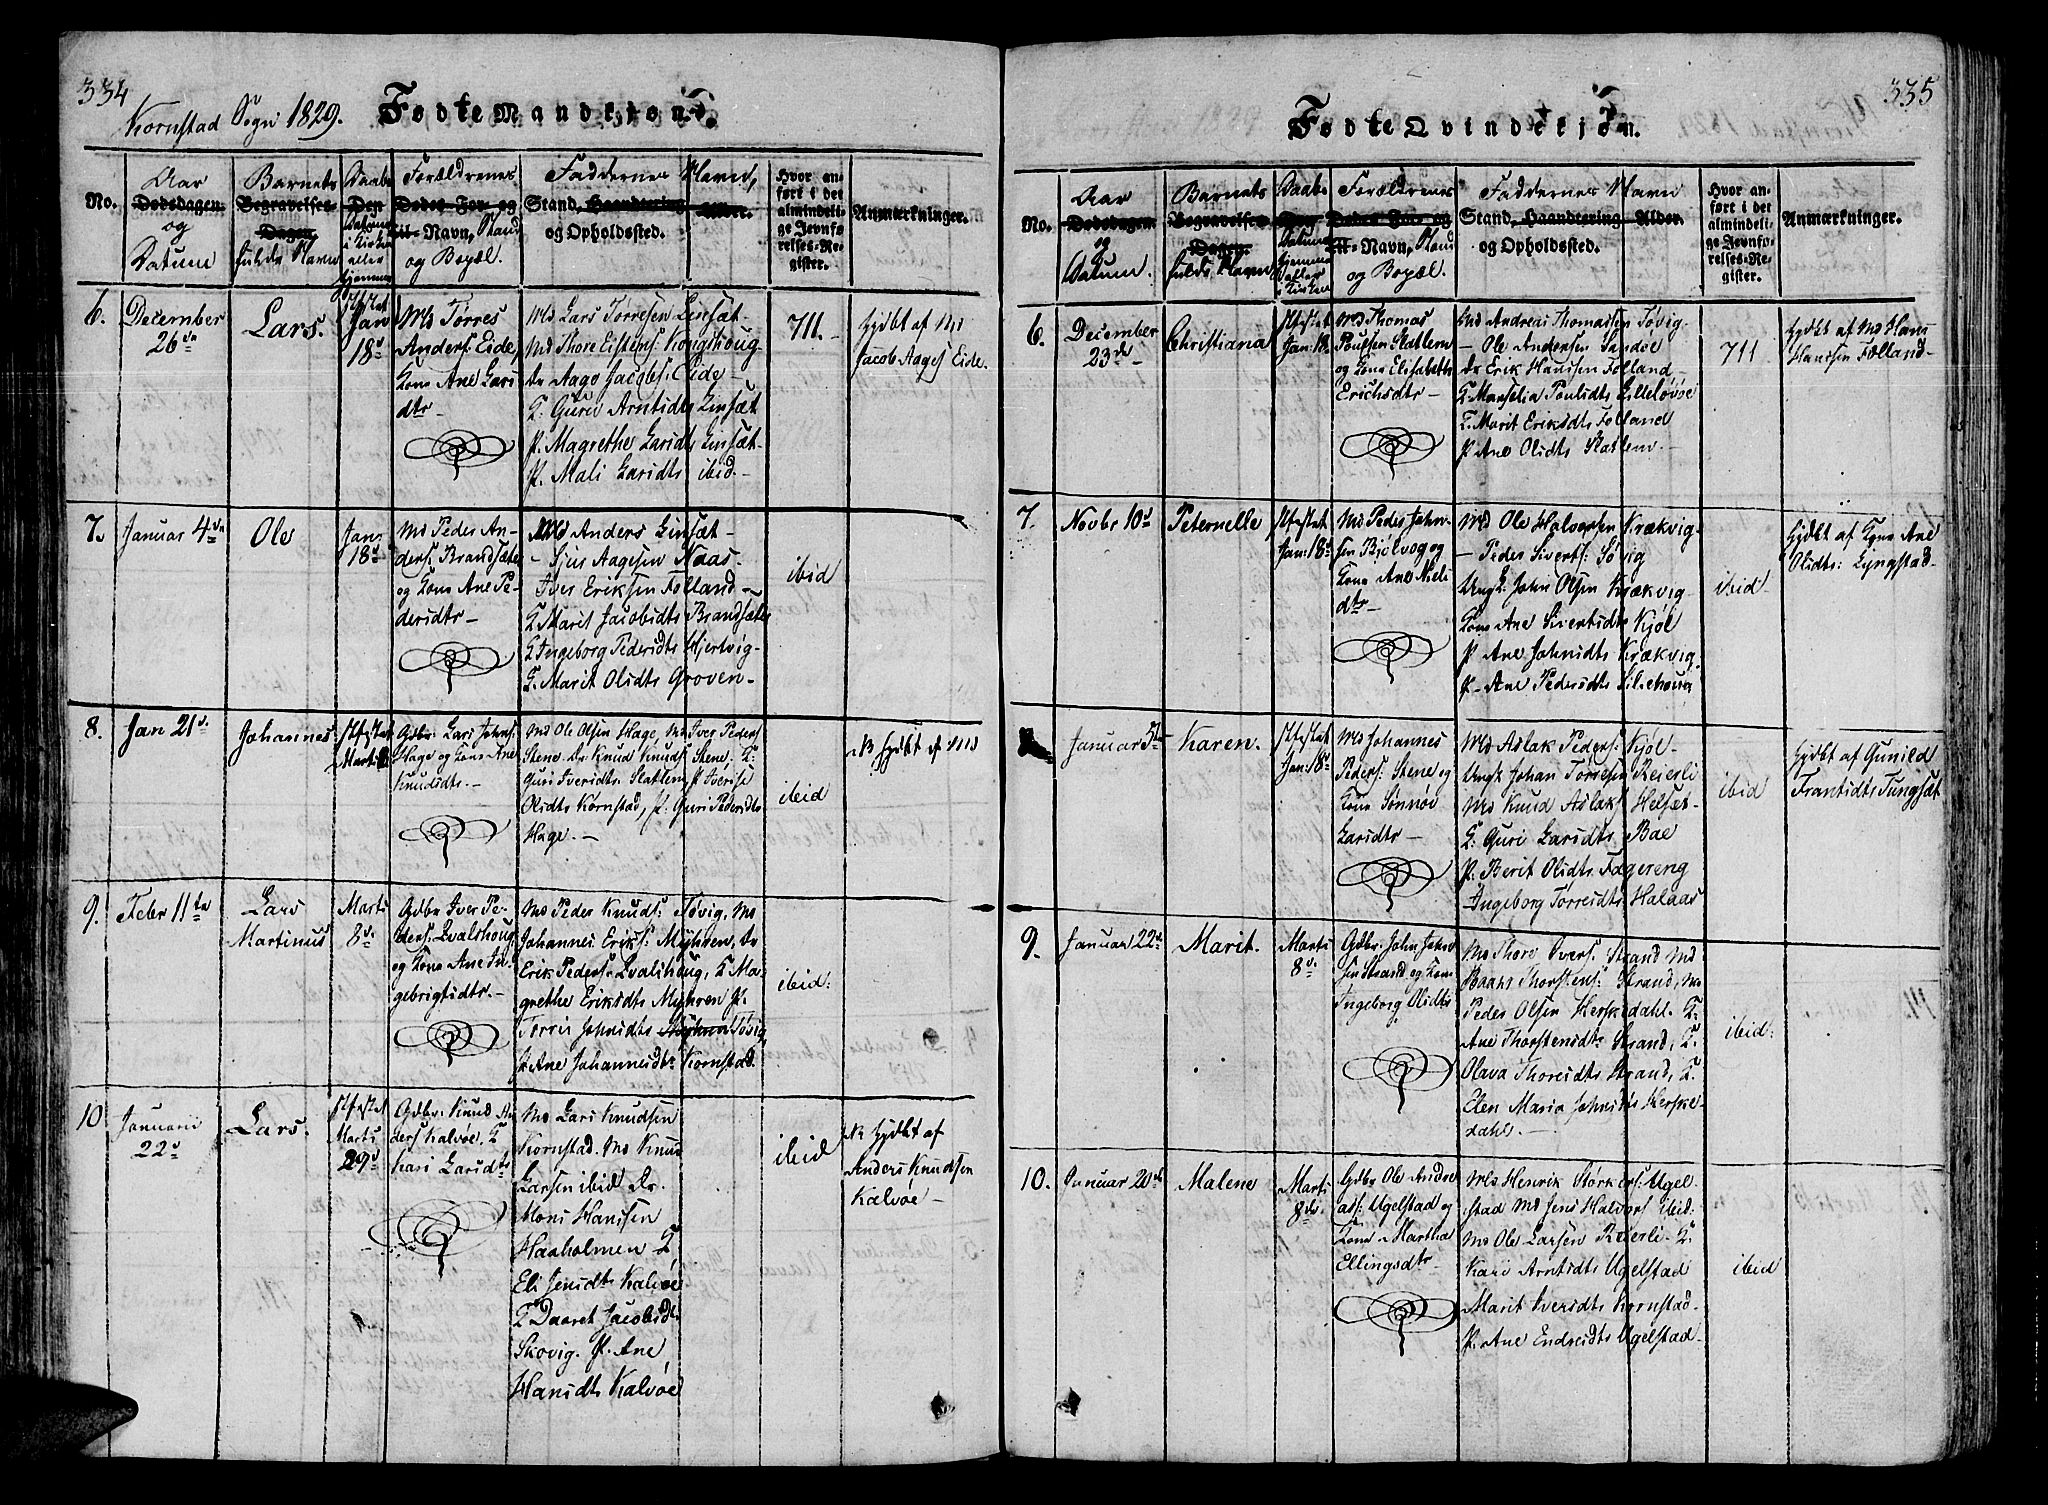 334
Kornstad Sogn 1829. Fødte Mandkjønd.
No.
Aar
Dødsdagen
og
Datum
Barnets
Begravelses-
Dagen
fulde Navn
Daabs
Den
Datum
i Kirken
eller
hjemme
Forældrenes
Dødes For- og
til-Navn, Stand
og Bopæl.
Faddernes Navn,
Stand, Haandtering Alder.
og Opholdssted.
Hvor an-
ført i det
almindeli-
ge Jevnfø-
relses-Re-
gister.
Anmærkninger.
6. December
26de
Lars.
Stfestet
Jan
18d
Md Torres
Anders: Eide,
Kone Ane Lars
dtr
Md Lars Torresen Linsæt
Md Thore Eistens: Kongshoug
Dr Aage Jacobs: Eide
K: Guri Arntsdtr Linsæt
P. Magrethe Larsdt Linsæt
P. Mali Larsdt ibid
711.
hjdbt af Md
Jacob Aages Eide.
7. Januar 4de
Ole
Jan
18d
Md Peder An-
ders: Brandsæter
og Kone Ane Pe-
dersdtr
Md Anders Linsæt
- Sjur Aagesen Naas
Iver Eriksen Folland
K Marit Jacobsdtr Brandsæter
K Ingeborg Pedersdtr Hjertvig
G. Marit Olsdtr Groven
ibid
8. Jan 21d.
Johannes
Stfestet
Marti 8
Gdbr: Lars Johns:
Hage og Kone Ane
Knudsdtr.
Md Ole Olsen Hage, Md Iver Peders
Stene. Dr: Knud Knuds Stene, K:
Guri Iversdtr: Slatlem P. Iverise
Olsdtr Kornstad, P. Guri Pedersdtr
Hage.
ibid
NB hjdbt af Md
9. Febr 11te
Lars
Martinus
Marti
8d
Gdbr Iver Pe-
ders: Qvalshoug
og Kone Ane In-
gebrigtsdtr.
Md Peder Knuds: Tøvig, Md
Johannes Eriks: Myhren, Dr
Erik Peders: Qvalshoug, K Ma-
grethe Eriksdtr Myhren P.
Torris Johnsdtr Myhren Tøvig
P. Ane Johannesdtr Kornstad.
ibid:
10 Januarii
22d
Lars.
Stfestet
Marts
29d
Gdbr: Knud An
ders Kalvøe, K
Kari Larsdtr
Md Lars Knudsen
Kornstad. Md Knud
Larsen ibid Dr.
Mons Hansen
Haaholmen K
Eli Jensdtr Kalvøe
K Daaret Jacobsdtr
Skovig. P. Ane
Hansdtr Kalvøe
ibid
N hjdbt af
Anders Knudsen
Kalvøe
335
Fødte Qvindekjøn.
No.
Aar
Dødsdagen
og
Datum.
Barnets
Begravelses
Dagen
fulde Navn
Daabs
Den
Datum
hjemme
eller
i Kirken
Forældrenes
Dødes For- og
til-Navn, Stand
og Bopæl.
Faddernes Navn
Stand, Haandtering Alder.
og Opholdssted.
Hvor an-
ført i det
almindeli-
ge Jevnfø-
relses-Re-
gister.
Anmærkninger.
6. December
23de
Christiana
Stfestet
Jan: 18.
Md Thomas
Poulsen Slatlem
og Kone Elisabeth
Erichsdtr
Md Andreas Thomassen Tøvig
- Ole Andersen Sandøe
Dr Erik Hansen Folland
K Marselia Poulsdtr Lilleløvøe
K. Marit Eriksdtr Folland
P Ane Olsdtr Slatlem
711
hjdbt af Md Hans
Hansen Følland
7. Novbr 10d
Peternelle
Stfestet
Jan: 18d
Md Peder John-
sen Kjølvog og
Kone Ane Niels
dtr
Md Ole Halvorsen Krækvig
- Peder Siverts: Søvig
Ungk: John Olsen Krækvig
Kone Ane Sivertsdtr Kjøl
P Ane Johnsdtr Krækvig
P- Ane Pedersdtr Silehoug
ibid
hjdbt af Kone Ane
Olsdtr: Lyngstad
Januar 5te
Karen.
Stfestet
Jan: 18d
Md Johannes
Peders: Stene og
Kone Sønnøv
Larsdtr
Md Aslak Peders: Kjøl
Ungk Johan Torresen Reierli
Md Knud Aslaks Helsæt
K: Guri Larsdtr Bae
P. Berit Olsdtr Fagereng
Ingeborg Torresdtr Halaas
ibid
hjdbt af Gunild
Frantsdtr Tungsæt
9. Januar 22d
Marit.
Marti
8d
Gdbr: John Jakob
sen Strand og Kone
Ingeborg Olsdtr
Md Thore Ivers: Strand Md
Baan Thorstens: Strand, Md
Peder Olsen Herskedahl. K:
Ane Thorstensdtr Strand, K.
Olava Thoresdtr Strand, K.
Elen Maria Johnsdtr Herske-
dahl.
ibid:
10. Januar 20de
Malene
Marti
8de
Gdbr Ole Andre
as: Ugelstad og
Kone Martha
Ellingsdtr
Md Henrik Størkers: Ugel-
stad Md Jens Halvors ibid:
Md Ole Larsen Reierli. K:
Kari Arntsdtr Ugelstad
Marit Iversdtr Kornstad
P. Ane Endresdtr Ugelstad
ibid